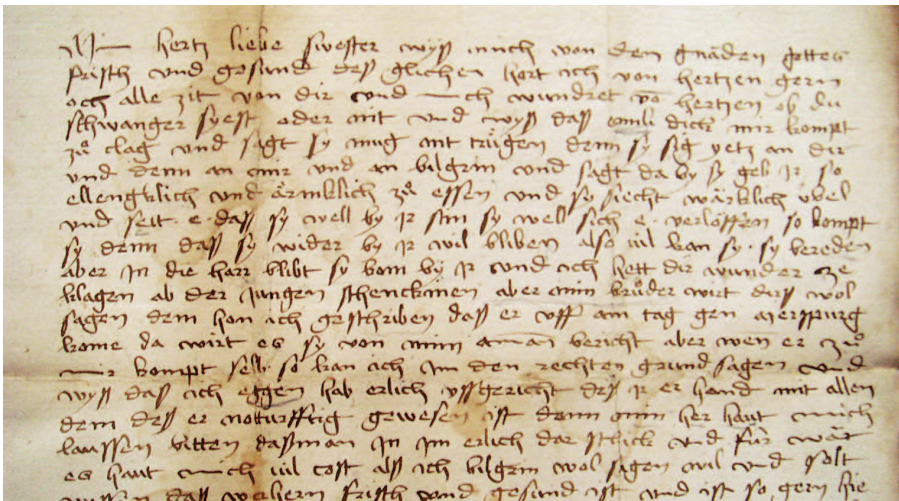 Min hertz liebe swester wyss mich von den gnaden gottes
frisch und gesund dess glichen hort ich von hertzen gern
och alle zit von dir und mich wundret vo hertzen ob du
schwanger syest oder nit und wyss dass dick mir kompt
zů clag und sagt sy mug nit trüigen denn sy sig yetz an dir
und denn an mir und an bilgrin und sagt da by sy geb ir so
ellengklich und ärmklich zů essen und sy siecht wärklich übel
und seit e dass sy well by ir sin sy well sich e verlöffen so kompt
sy denn dass sy wider by ir wil bliben also vil kan sy sy bereden
aber in die harr blibt sy kom by ir und ich hett dir wunder ze
klagen ab der jungen schenckinen aber min brůder wirt dirss wol
sagen dem hon ich geschriben dass er uff am tag gen merspurg
kome da wirt es sy von minn aman bericht aber wen er zů
mir kompt selb so kan ich im den rechten grund sagen und
wyss dass ich eggen hab erlich ussgericht dess ir er hand mit allen
dem dess er noturfftig gewesen ist denn min her haut mich
laussen bitten dassman in im erlich dar schick und für wär
es haut mich vil cost alss ich bilgrin wol sagen wil und solt
wissen dass frisch und gesund ist und ist so gern hie